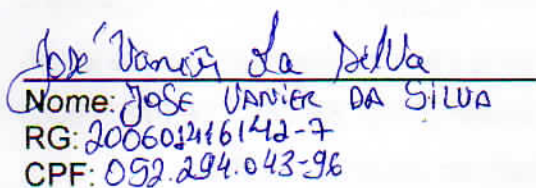 José Vanier da Silva
Nome: JOSE VANIER DA SILVA
RG: 200601416142-7
CPF: 092.294.043-96